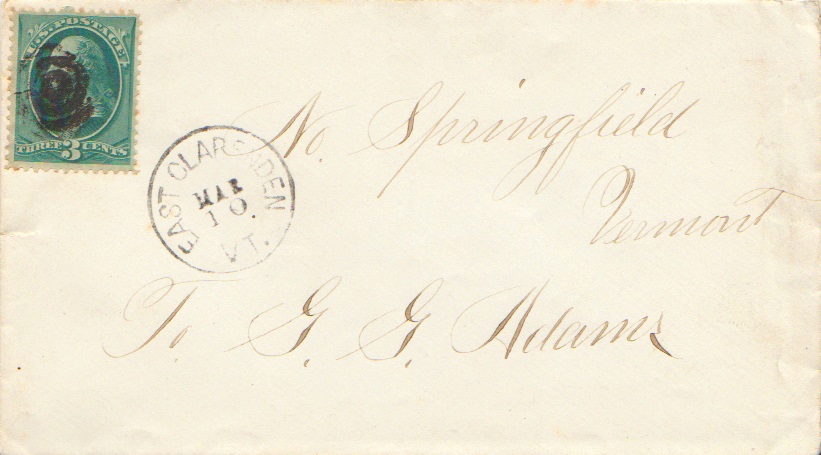 U.S. POSTAGE
THREE 3 CENTS
EAST CLARENDEN
MAR
10
VT.
No. Springfield
Vermont
To G. G. Adams